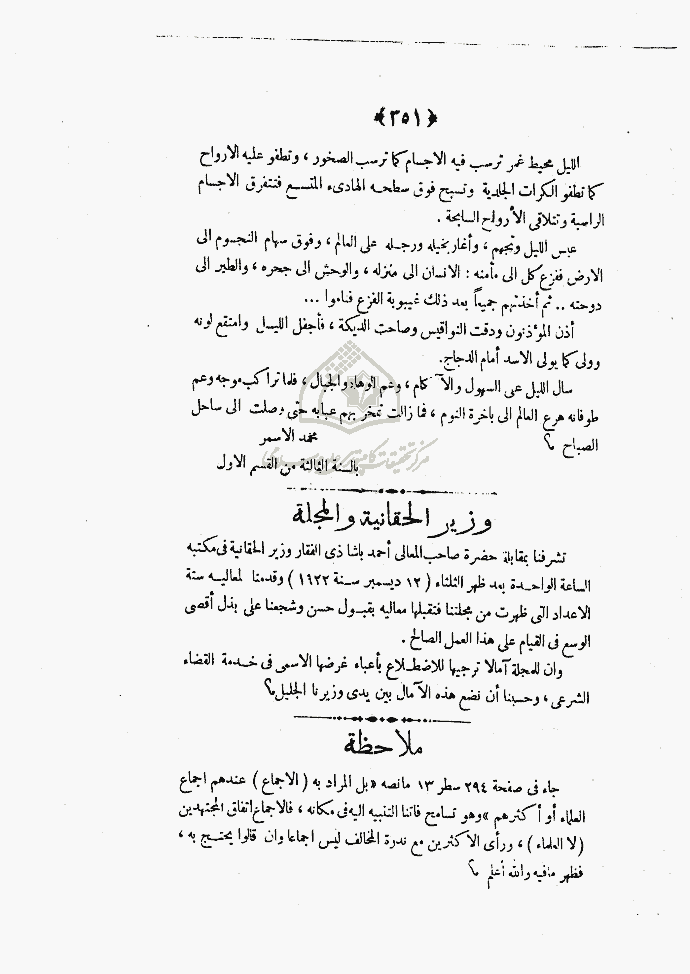 ﴿٣٥١﴾
الليل محيط غمر ترسب فيه الاجسام كما ترسب الصخور ، وتطفو عليه الارواح
كما تطفو الكرات الجلدية وتسبح فوق سطحه الهادىء المتسع فتتفرق الاجسام
الراسبة وتتلاقى الأرواح السابحة .
عبس الليل وتجهم ، وأغار بخيله ورجله على العالم ، وفوق سهام النجوم الى
الارض ففزع كل الى مأمنه : الانسان الى منزله ، والوحش الى جحره ، والطير الى
دوحته .. ثم أخذتهم جميعاً بعد ذلك غيبوبة الفزع فناموا ...
أذن المؤذنون ودقت النواقيس وصاحت الديكة ، فأجفل الليل وامتقع لونه
وولى كما يولى الاسد أمام الدجاج.
سال الليل على السهول والآكام ، وعم الوهاد والجبال ، فلما تراكب موجه وعم
طوفانه هرع العالم الى باخرة النوم ، فما زالت تمخر بهم عبابه حتى وصلت الى ساحل
الصباح
محمد الاسمر
بالسنة الثالثة من القسم الاول
وزير الحقانية والمجلة
تشرفنا بمقابلة حضرة صاحب المعالى أحمد باشا ذى الفقار وزير الحقانية فى مكتبه
الساعة الواحدة بعد ظهر الثلثاء ( ١٢ ديسمبر سنة ١٩٢٢ ) وقدمنا لمعاليه ستة
الاعداد التى ظهرت من مجلتنا فتقبلها معاليه بقبول حسن وشجعنا على بذل أقصى
الوسع فى القيام على هذا العمل الصالح .
وان للمجلة آمالا ترجيها للاضطلاع بأعباء غرضها الاسمى فى خدمة القضاء
الشرعى ، وحسبنا أن نضع هذه الآمال بين يدى وزيرنا الجليل
ملاحظة
جاء فى صفحة ٢٩٤ سطر ١٣ مانصه «بل المراد به ( الاجماع ) عندهم اجماع
العلماء أو أكثرهم » وهو تسامح فاتنا التنبيه اليه فى مكانه ، فالاجماع اتفاق المجتهدين
( لا العلماء ) ، ورأى الاكثرين مع ندرة المخالف ليس اجماعا وان قالوا يحتج به ،
فظهر مافيه والله أعلم